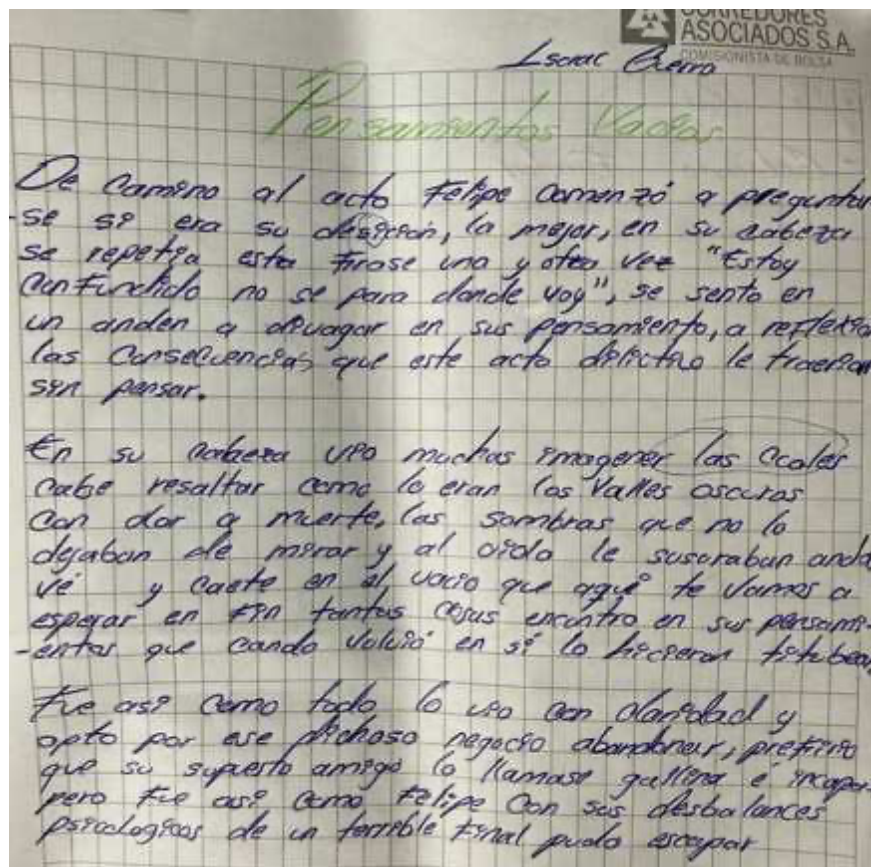 CORREDORES
ASOCIADOS S.A.
COMISIONISTA DE BOLSA
Isaac
Pensamientos Vacios
De camino al acto Felipe comenzó a preguntar
-se si era su desición, la mejor, en su cabeza
se repetia esta frase una y otra vez "Estoy
confundido no se para donde voy", se sento en
un anden a divagar en sus pensamiento, a reflexio
las consecuencias que este acto dilictivo le traerian
sin pensar.
En su cabeza vio muchas imagener las cuales
cabe resaltar como lo eran los valles oscuros
con olor a muerte, las sombras que no lo
dejaban de mirar y al oido le susuraban anda
vé y caete en el vacio que aqui te vamos a
esperar en fin tantas cosas encontro en sus pensami-
-entos que cando volvió en sí lo hicieron titubear
Fue asi como todo lo vio con claridad y
opto por ese dichoso negocio abandonar, prefirio
que su supuesto amigo lo llamase gallina é incapaz
pero fue asi como Felipe con sus desbalances
psicologicos de un terrible final pudo escapar